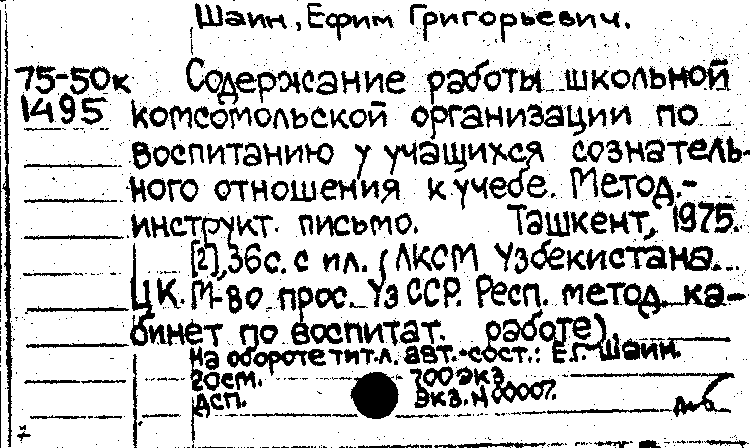 Шаин, Ефим Григорьевич.
75-50к Содержание работы школьной
1495 комсомольской организации по
воспитанию у учащихся сознатель-
ного отношения к учебе. Метод.-
инструкт. письмо. Ташкент, 1975.
[2], 36с. с ил. (ЛКСМ Узбекистана.
ЦК. М-во прос. УзССР. Респ. метод. ка-
бинет по воспитат. работе).
На обороте тит.л. авт.-сост.: Е.Г. Шаин.
20см. 700 экз.
ДСП. Экз. N 00007.